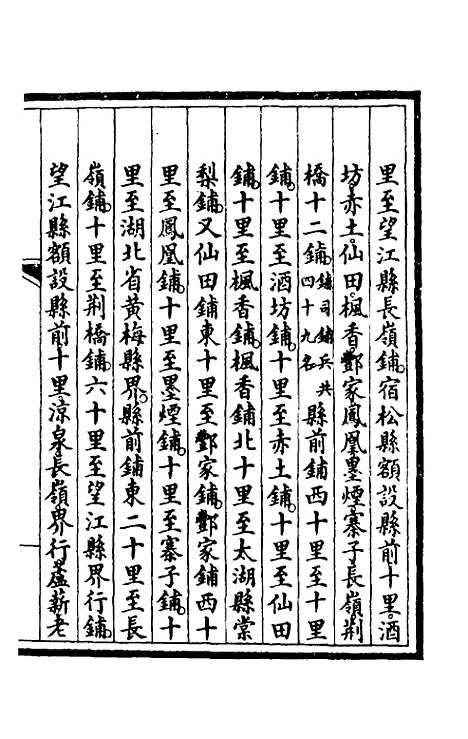 里至望江縣長嶺鋪。宿松縣額設縣前十里。酒
坊。赤土。仙田。楓香。酆家。鳳凰。墨煙。寨子。長嶺。荆
橋十二鋪。鋪司鋪兵共四十九名縣前鋪西十里至十里
鋪。十里至酒坊鋪。十里至赤土鋪。十里至仙田
鋪。十里至楓香鋪。楓香鋪北十里至太湖縣棠
梨鋪。又仙田鋪東十里至酆家鋪。酆家鋪西十
里至鳳凰鋪。十里至墨煙鋪。十里至寨子鋪。十
里至湖北省黄梅縣界。縣前鋪東二十里至長
嶺鋪。十里至荆橋鋪。六十里至望江縣界行鋪。
望江縣額設縣前。十里。涼泉。長嶺。界行。蘆薪。老